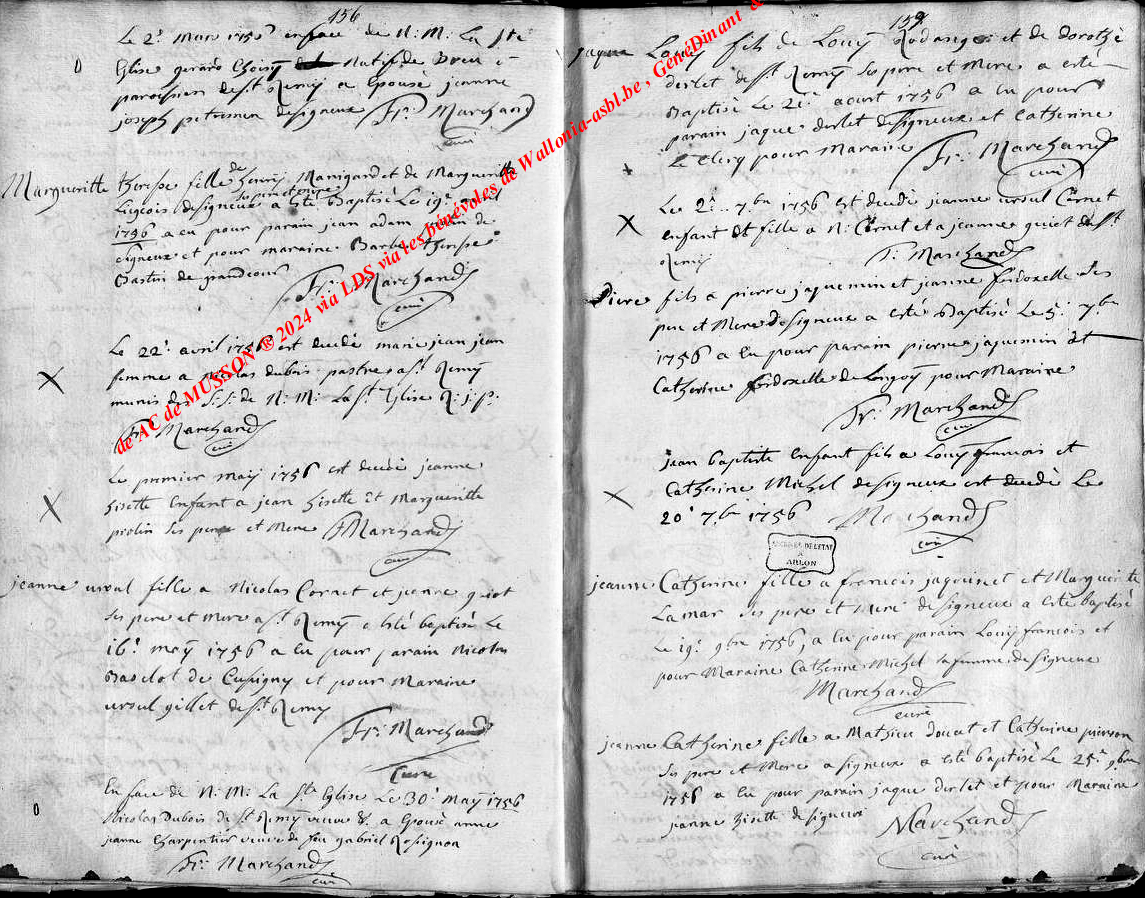 156
Le 2ᵉ Mars 1756 enface de N: M: La Ste
Eglise gerard Choisy natif de Breu
paroissien de St Remy a Epousé jeanne
joseph de signeux Fr: Marchand
curé
Margueritte therese fille de henry Manigand et de Margueritte
Liegeois designeux ses pere et mere a esté Baptisé Le 19ᵉ avril
1756 a eu pour parain jean adam de
signeux et pour maraine Barbe therese
Bastin de grandcour Fr: Marchand
curé
Le 22ᵉ avril 1756 est decedé marie jean jean
femme a nicolas dubois pastre a St Remy
munis des S: S: de N: M: La St Eglise R: j: P:
Fr: Marchand
curé
Le premier maÿ 1756 est decedé jeanne
hisette enfant a jean hisette Et Margueritte
piolin ses pere et Mere F Marchand
curé
jeanne ursul fille a Nicolas Cornet et jeanne quiot
ses pere et Mere a St Remy a Esté baptisé Le
16ᵉ maÿ 1756 a Eu pour parain Nicolas
Baselot de Cussigny et pour Maraine
ursul gillet de St Remy
Fr: Marchand
Curé
En face de N: M: La Ste Eglise Le 30ᵉ Maÿ 1756
Nicolas Dubois de St Remy veuve a Epousé anne
jeanne Charpentier veuve de feu gabriel Rosignon
Fr: Marchand
curé
159
jaque Louÿ fils de Louÿ Rodange et de dorothé
derlet de St Remy ses pere et Mere a esté
Baptisé Le 21ᵉ aoust 1756 a Eu pour
parain jaque derlet designeux et Catherine
Le Clerq pour Maraine Fr: Marchand
curé
Le 2ᵉ 7bre 1756 est decedé jeanne ursul Cornet
enfant et fille a N: Cornet et a jeanne quiot de St
Remy Fr: Marchand
Piere fils a pierre jaquemin et jeanne fridoxelle ses
pere et Mere designeux a esté Baptisé Le 5ᵉ 7bre
1756 a Eu pour parain pierre jaquemin Et
Catherine fridoxelle de Longoÿ pour Maraine
Fr: Marchand
curé
jean baptiste Enfant fils a Louÿ francois et
Catherine Michel designeux est decedé Le
20ᵉ 7bre 1756 Marchand
curé
ARCHIVES DE L'ETAT
A
ARLON
jeanne Catherine fille a francois jaquinet et Margueritte
La mar ses pere et Mere designeux a esté baptisé
Le 19ᵉ 9bre 1756, a Eu pour parain Louÿ francois et
pour Maraine Catherine Michel sa femme designeux
Marchand
curé
jeanne Catherine fille a Mathieu doucet et Catherine pierson
ses pere et Mere a signeux a esté baptisé Le 25ᵉ 9bre
1756 a Eu pour parain jaque derlet et pour Maraine
jeanne hisette de signeux Marchand
curé
de AC de MUSSON ® 2024 via LDS via les bénévoles de Wallonia-asbl.be , GénéDinant &